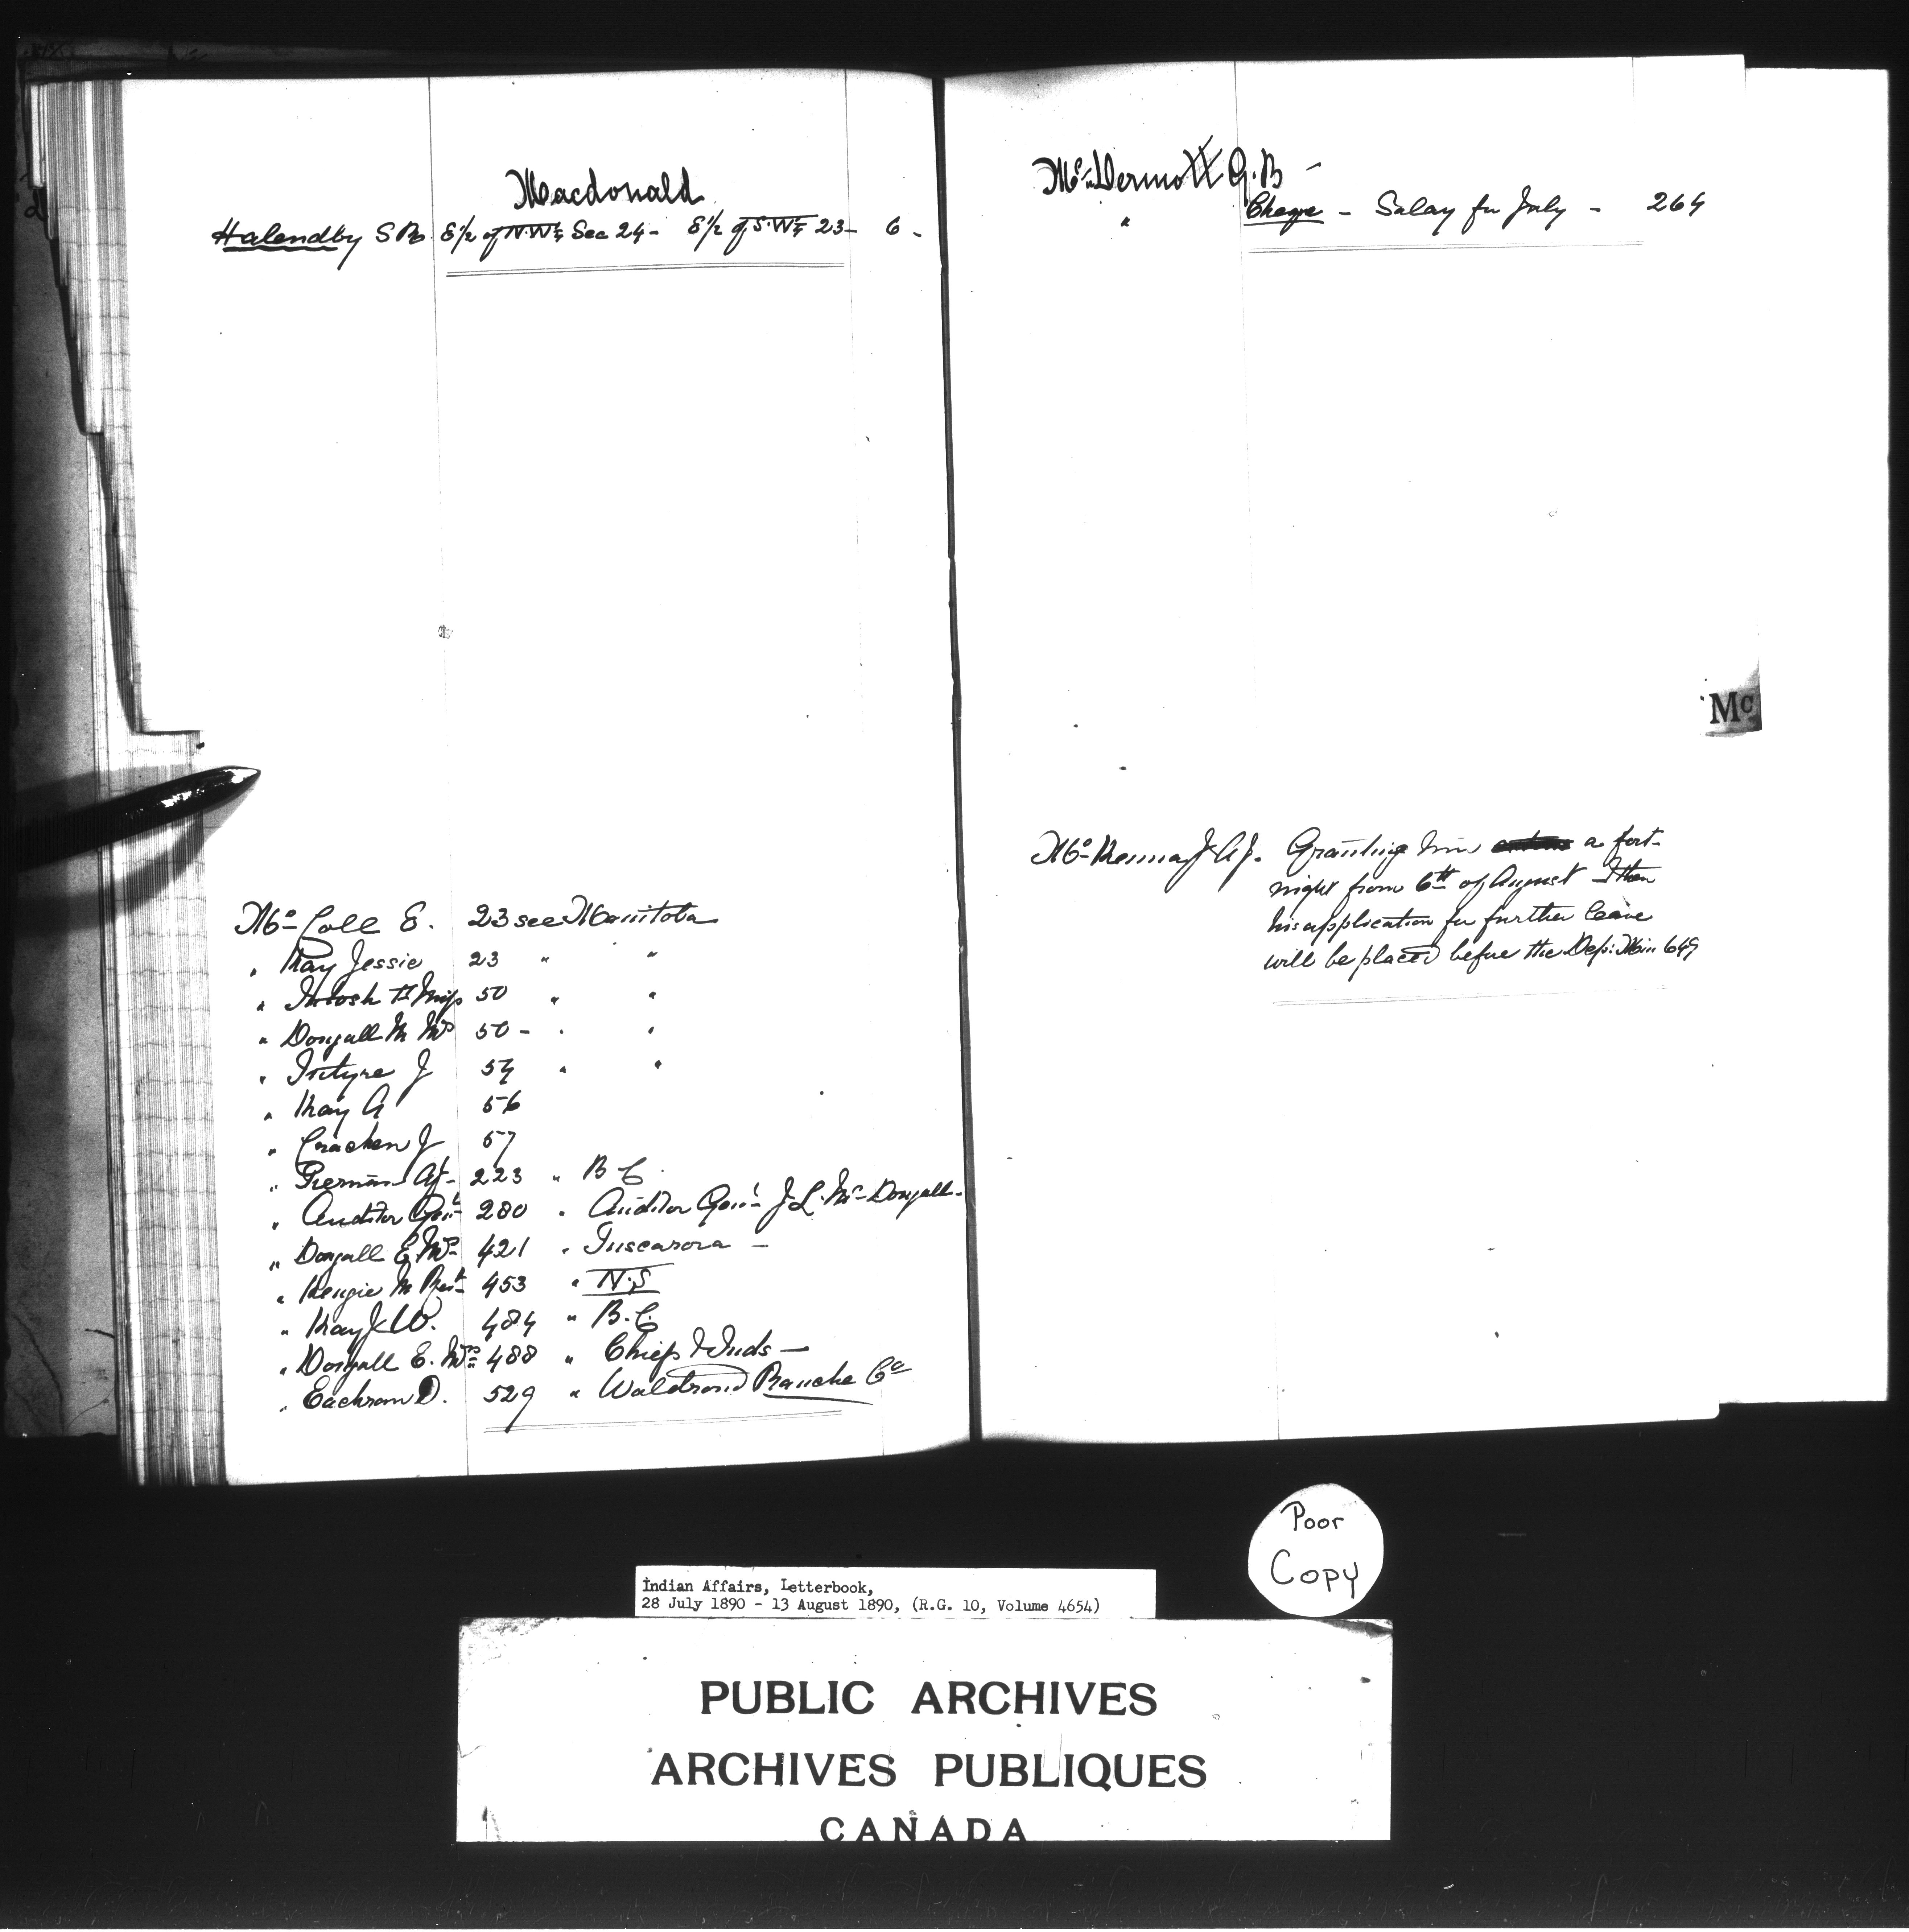 Macdonald
Halendby S Rd. E½ of N.W¼ Sec 24 - E½ of S.W¼ 23 - 6 -
Mc Coll E. 23 see Manitoba
" Kay Jessie 23 " "
" Intosh 50 " "
" Dougall M Mrs 50 - " "
" Intyre J 54 " "
" Kay A 56
" Cracken J 57
" Tiernan 223 " B C
" Auditor Genl 280 " Auditor Genl J L. Mc Dougall -
" Dougall E Mrs 421 " Tuscarora -
" Kenzie M 453 " N.S
" Kay J W. 484 " B.C.
" Dougall E. Mrs 488 " Chiefs & Inds -
" Eachran D. 529 " Waldrond Ranche Co
Mc Dermott G. B -
" Cheque - Salary for July - 264
Mc
Mc Kenna J A J. Granting him a fort-
night from 6th of August - then
his application for further leave
will be placed before the Dep: Min 649
Poor
Copy
Indian Affairs, Letterbook,
28 July 1890 - 13 August 1890, (R.G. 10, Volume 4654)
PUBLIC ARCHIVES
ARCHIVES PUBLIQUES
CANADA